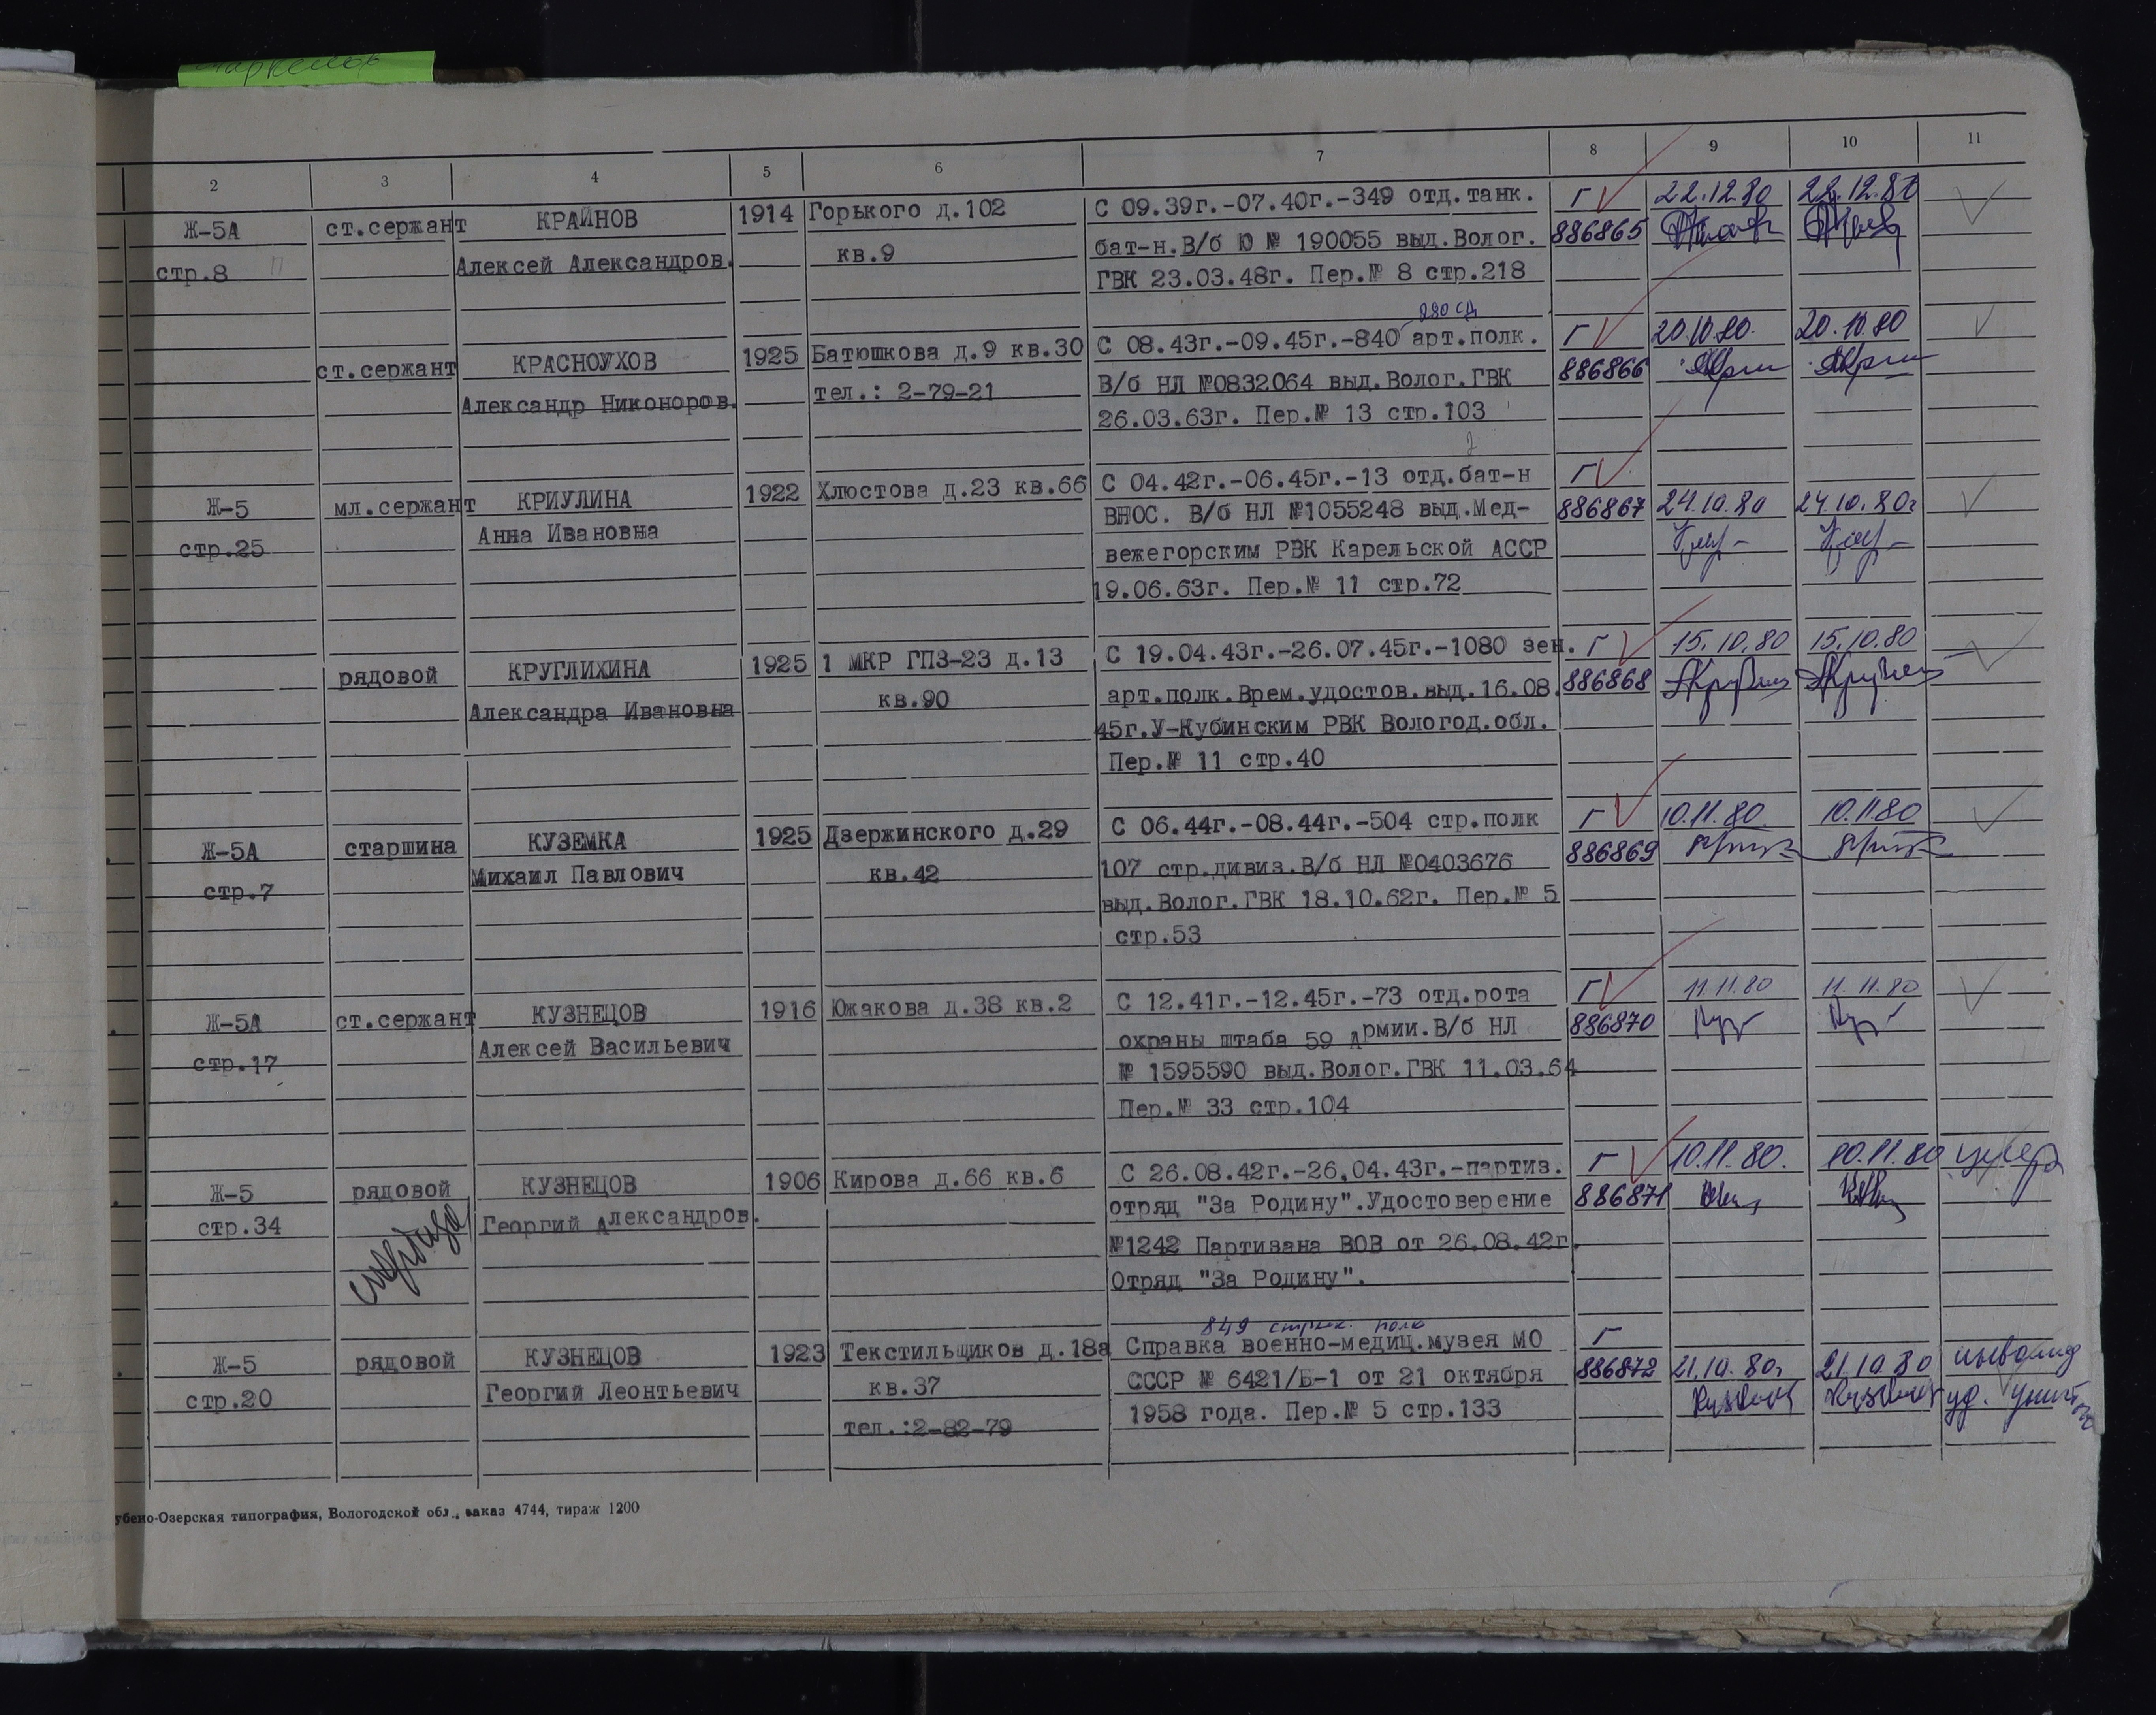 2 3 4 5 6 7 8 9 10 11
Ж-5А ст.сержант КРАЙНОВ 1914 Горького д.102 С 09.39г.-07.40г.-349 отд.танк. Г 22.12.80 22.12.80
стр.8 Алексей Александров. кв.9 бат-н.В/б Ю № 190055 выд.Волог. 886865
ГВК 23.03.48г. Пер.№ 8 стр.218
ст.сержант КРАСНОУХОВ 1925 Батюшкова д.9 кв.30 С 08.43г.-09.45г.-840 арт.полк. Г 20.10.80. 20.10.80
Александр Никоноров. тел.: 2-79-21 В/б НЛ №0832064 выд.Волог.ГВК 886866
26.03.63г. Пер.№ 13 стр.103
Ж-5 мл.сержант КРИУЛИНА 1922 Хлюстова д.23 кв.66 С 04.42г.-06.45г.-13 отд.бат-н Г
стр.25 Анна Ивановна ВНОС. В/б НЛ №1055248 выд.Мед- 886867 24.10.80 24.10.80г
вежегорским РВК Карельской АССР
19.06.63г. Пер.№ 11 стр.72
рядовой КРУГЛИХИНА 1925 1 МКР ГПЗ-23 д.13 С 19.04.43г.-26.07.45г.-1080 зен. Г 15.10.80 15.10.80
Александра Ивановна кв.90 арт.полк.Врем.удостов.выд.16.08. 886868
45г.У-Кубинским РВК Вологод.обл.
Пер.№ 11 стр.40
Ж-5А старшина КУЗЕМКА 1925 Дзержинского д.29 С 06.44г.-08.44г.-504 стр.полк Г 10.11.80. 10.11.80
стр.7 Михаил Павлович кв.42 107 стр.дивиз.В/б НЛ №0403676 886869
выд.Волог.ГВК 18.10.62г. Пер.№ 5
стр.53
Ж-5А ст.сержант КУЗНЕЦОВ 1916 Южакова д.38 кв.2 С 12.41г.-12.45г.-73 отд.рота Г 11.11.80 11.11.80
стр.17 Алексей Васильевич охраны штаба 59 Армии.В/б НЛ 886870
№ 1595590 выд.Волог.ГВК 11.03.64
Пер.№ 33 стр.104
Ж-5 рядовой КУЗНЕЦОВ 1906 Кирова д.66 кв.6 С 26.08.42г.-26.04.43г.-партиз. Г 10.11.80. 10.11.80 умер
стр.34 Георгий Александров. отряд "За Родину".Удостоверение 886871
№1242 Партизана ВОВ от 26.08.42г.
Отряд "За Родину".
849 стрелк. полк
Ж-5 рядовой КУЗНЕЦОВ 1923 Текстильщиков д.18а Справка военно-медиц.музея МО Г
стр.20 Георгий Леонтьевич кв.37 СССР № 6421/Б-1 от 21 октября 886872 21.10.80г 21.10.80 инвалид
тел.:2-82-79 1958 года. Пер.№ 5 стр.133 уд.
убено-Озерская типография, Вологодской обл., заказ 4744, тираж 1200